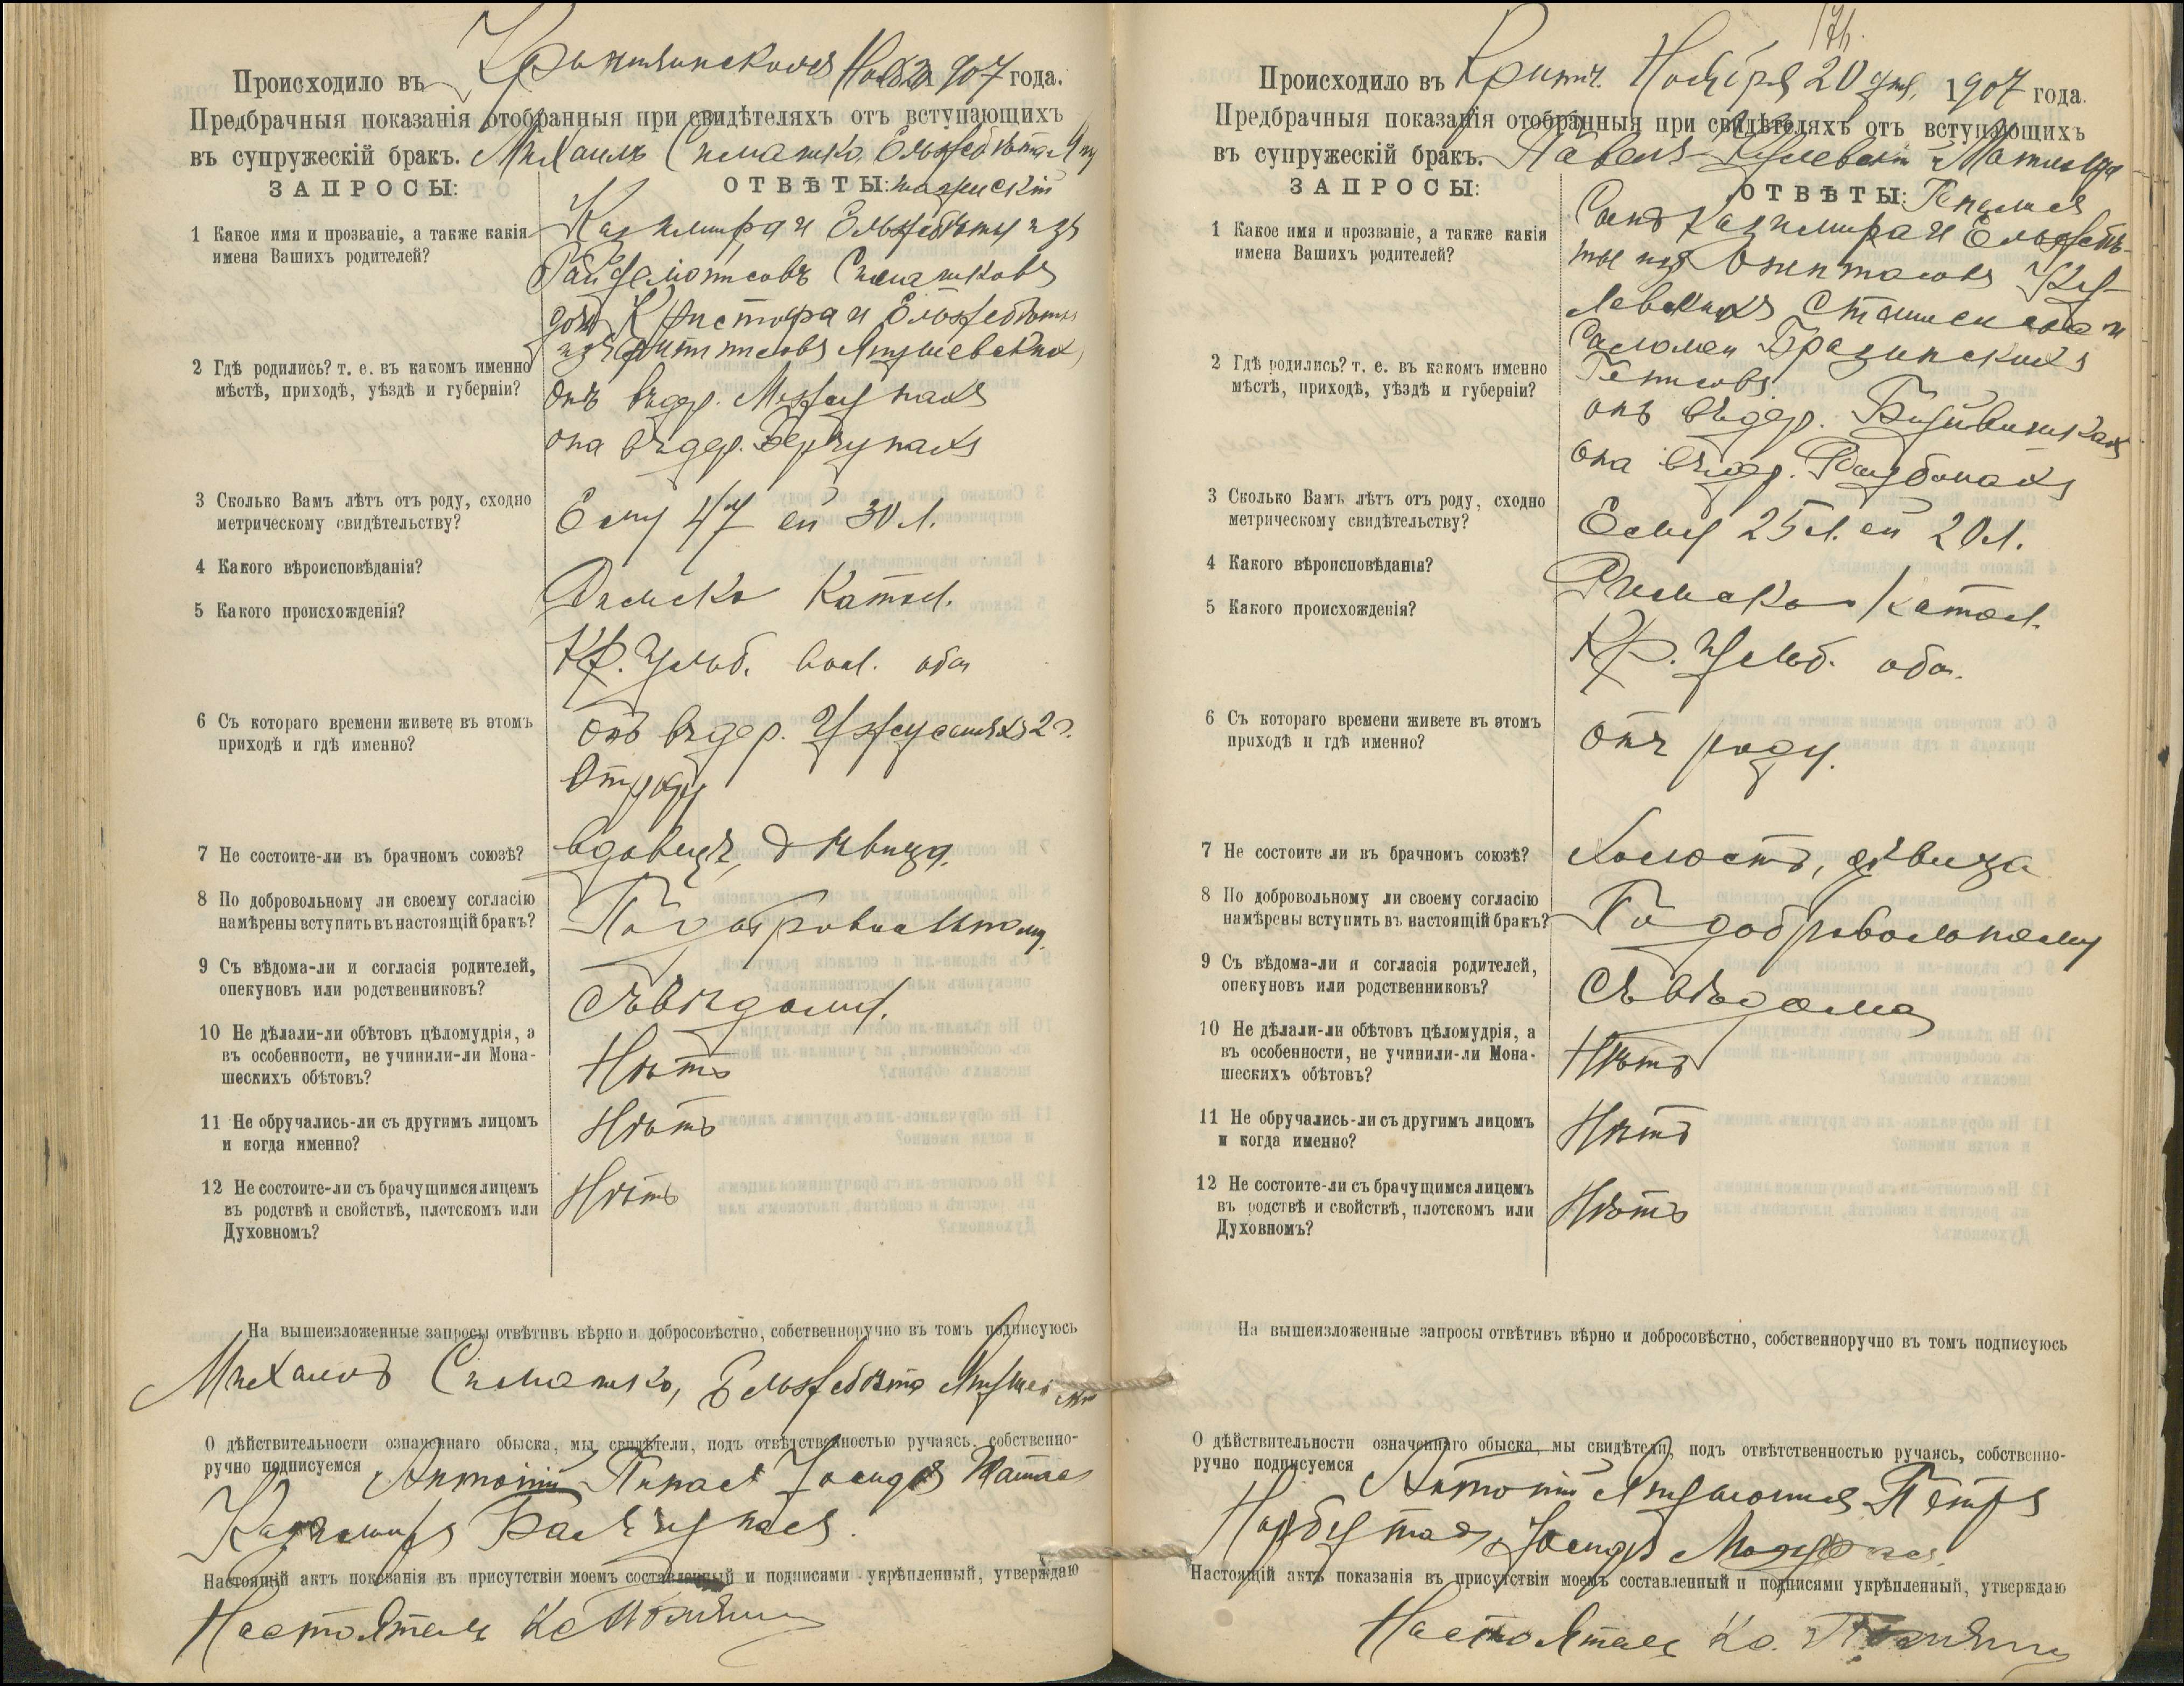 Происходило въ 1907 года.
Предбрачныя показанія отобранныя при свидѣтеляхъ отъ вступающихъ
въ супружескій бракъ. Михаилъ Симашко, Ельжебѣта
ЗАПРОСЫ:
ОТВѢТЫ:
1 Какое имя и прозваніе, а также какія
имена Вашихъ родителей?
Казимира и Ельжебѣты изъ
Симашковъ
дочь Кристофа и Ельжебѣты
изъ
2 Гдѣ родились? т. е. въ какомъ именно
мѣстѣ, приходѣ, уѣздѣ и губерніи?
онъ въ дер.
она въ дер.
3 Сколько Вамъ лѣтъ отъ роду, сходно
метрическому свидѣтельству?
Ему 47 ей 30 л.
4 Какого вѣроисповѣданія?
Римско Катол.
5 Какого происхожденія?
Кр. вол. оба
6 Съ котораго времени живете въ этомъ
приходѣ и гдѣ именно?
онъ въ дер. 2 г.
Отъ роду
7 Не состоите-ли въ брачномъ союзѣ?
Вдовецъ, дѣвица
8 По добровольному ли своему согласію
намѣрены вступить въ настоящій бракъ?
По добровольному
9 Съ вѣдома-ли и согласія родителей,
опекуновъ или родственниковъ?
Съ вѣдома
10 Не дѣлали-ли обѣтовъ цѣломудрія, а
въ особенности, не учинили-ли Мона-
шескихъ обѣтовъ?
Нѣтъ
11 Не обручались-ли съ другимъ лицомъ
и когда именно?
Нѣтъ
12 Не состоите-ли съ брачущимся лицемъ
въ родствѣ и свойствѣ, плотскомъ или
Духовномъ?
Нѣтъ
На вышеизложенные запросы отвѣтивъ вѣрно и добросовѣстно, собственноручно въ томъ подписуюсь
Михаилъ Симашко, Ельжебѣта
О дѣйствительности означеннаго обыска, мы свидѣтели, подъ отвѣтственностью ручаясь, собственно-
ручно подписуемся Антоній
Казимиръ
Настоящій актъ показанія въ присутствіи моемъ составленный и подписями укрѣпленный, утверждаю
Настоятель Кс.
Происходило въ Ноября 20 дня 1907 года.
Предбрачныя показанія отобранныя при свидѣтеляхъ отъ вступающихъ
въ супружескій бракъ. Павелъ
ЗАПРОСЫ:
ОТВѢТЫ:
1 Какое имя и прозваніе, а также какія
имена Вашихъ родителей?
Сынъ Казимира и Ельжебѣ-
ты изъ
2 Гдѣ родились? т. е. въ какомъ именно
мѣстѣ, приходѣ, уѣздѣ и губерніи?
онъ въ дер.
она въ дер.
3 Сколько Вамъ лѣтъ отъ роду, сходно
метрическому свидѣтельству?
Ему 25 л. ей 20 л.
4 Какого вѣроисповѣданія?
Римско Катол.
5 Какого происхожденія?
Кр. оба.
6 Съ котораго времени живете въ этомъ
приходѣ и гдѣ именно?
Отъ роду.
7 Не состоите ли въ брачномъ союзѣ?
Холостъ, дѣвица
8 По добровольному ли своему согласію
намѣрены вступить въ настоящій бракъ?
По добровольному
9 Съ вѣдома-ли и согласія родителей,
опекуновъ или родственниковъ?
Съ вѣдома
10 Не дѣлали-ли обѣтовъ цѣломудрія, а
въ особенности, не учинили-ли Мона-
шескихъ обѣтовъ?
Нѣтъ
11 Не обручались-ли съ другимъ лицомъ
и когда именно?
Нѣтъ
12 Не состоите-ли съ брачущимся лицемъ
въ родствѣ и свойствѣ, плотскомъ или
Духовномъ?
Нѣтъ
На вышеизложенные запросы отвѣтивъ вѣрно и добросовѣстно, собственноручно въ томъ подписуюсь
О дѣйствительности означеннаго обыска, мы свидѣтели, подъ отвѣтственностью ручаясь, собственно-
ручно подписуемся Антоній Петръ
Іосифъ
Настоящій актъ показанія въ присутствіи моемъ составленный и подписями укрѣпленный, утверждаю
Настоятель Кс.